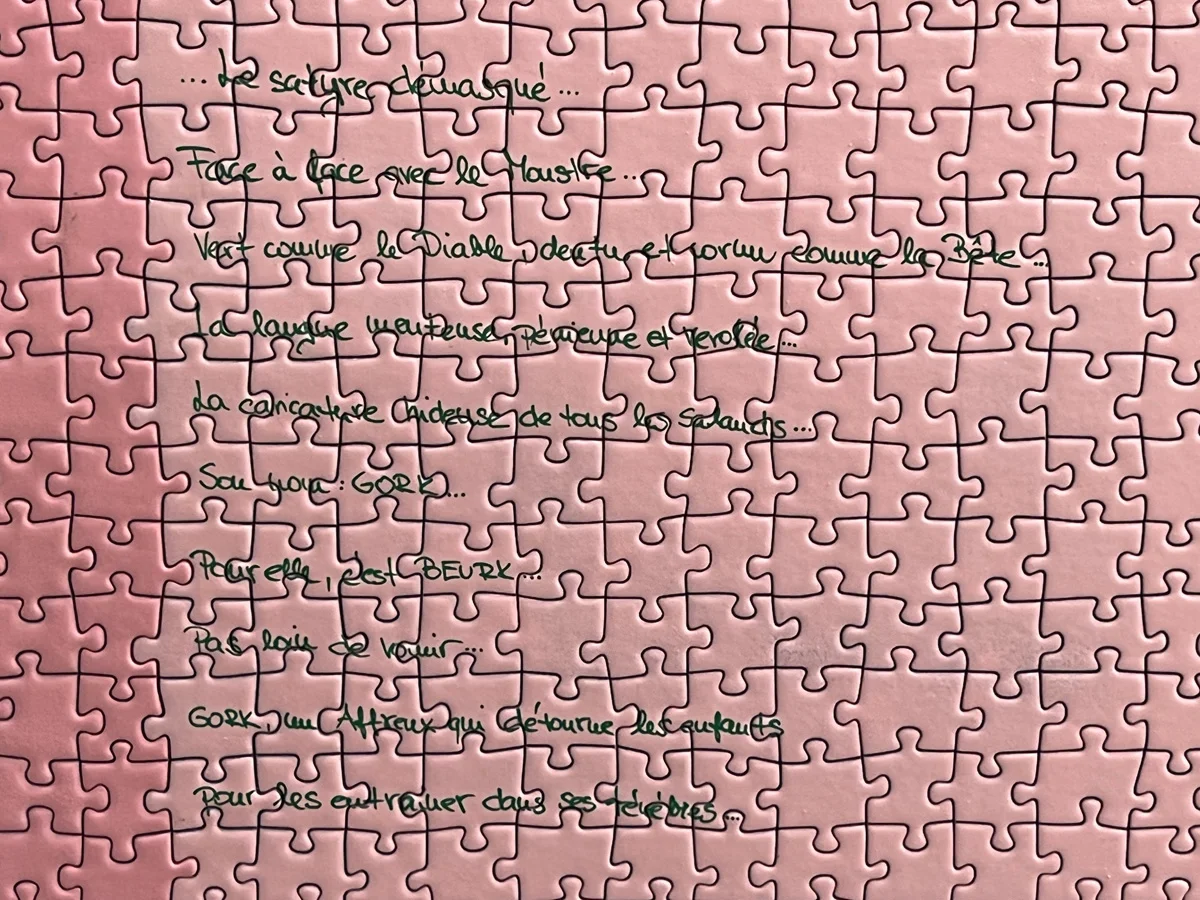 ... Le satyre démasqué ...
Face à face avec le Monstre ...
Vert comme le Diable, dentu et cornu comme la Bête ...
La langue menteuse, et verolée ...
La caricature hideuse de tous les salauds ...
Son nom : GORK ...
Pour elle, c'est BEURK ...
Pas loin de vomir ...
GORK, un Affreux qui détourne les enfants
Pour les entrainer dans ses ténèbres ...